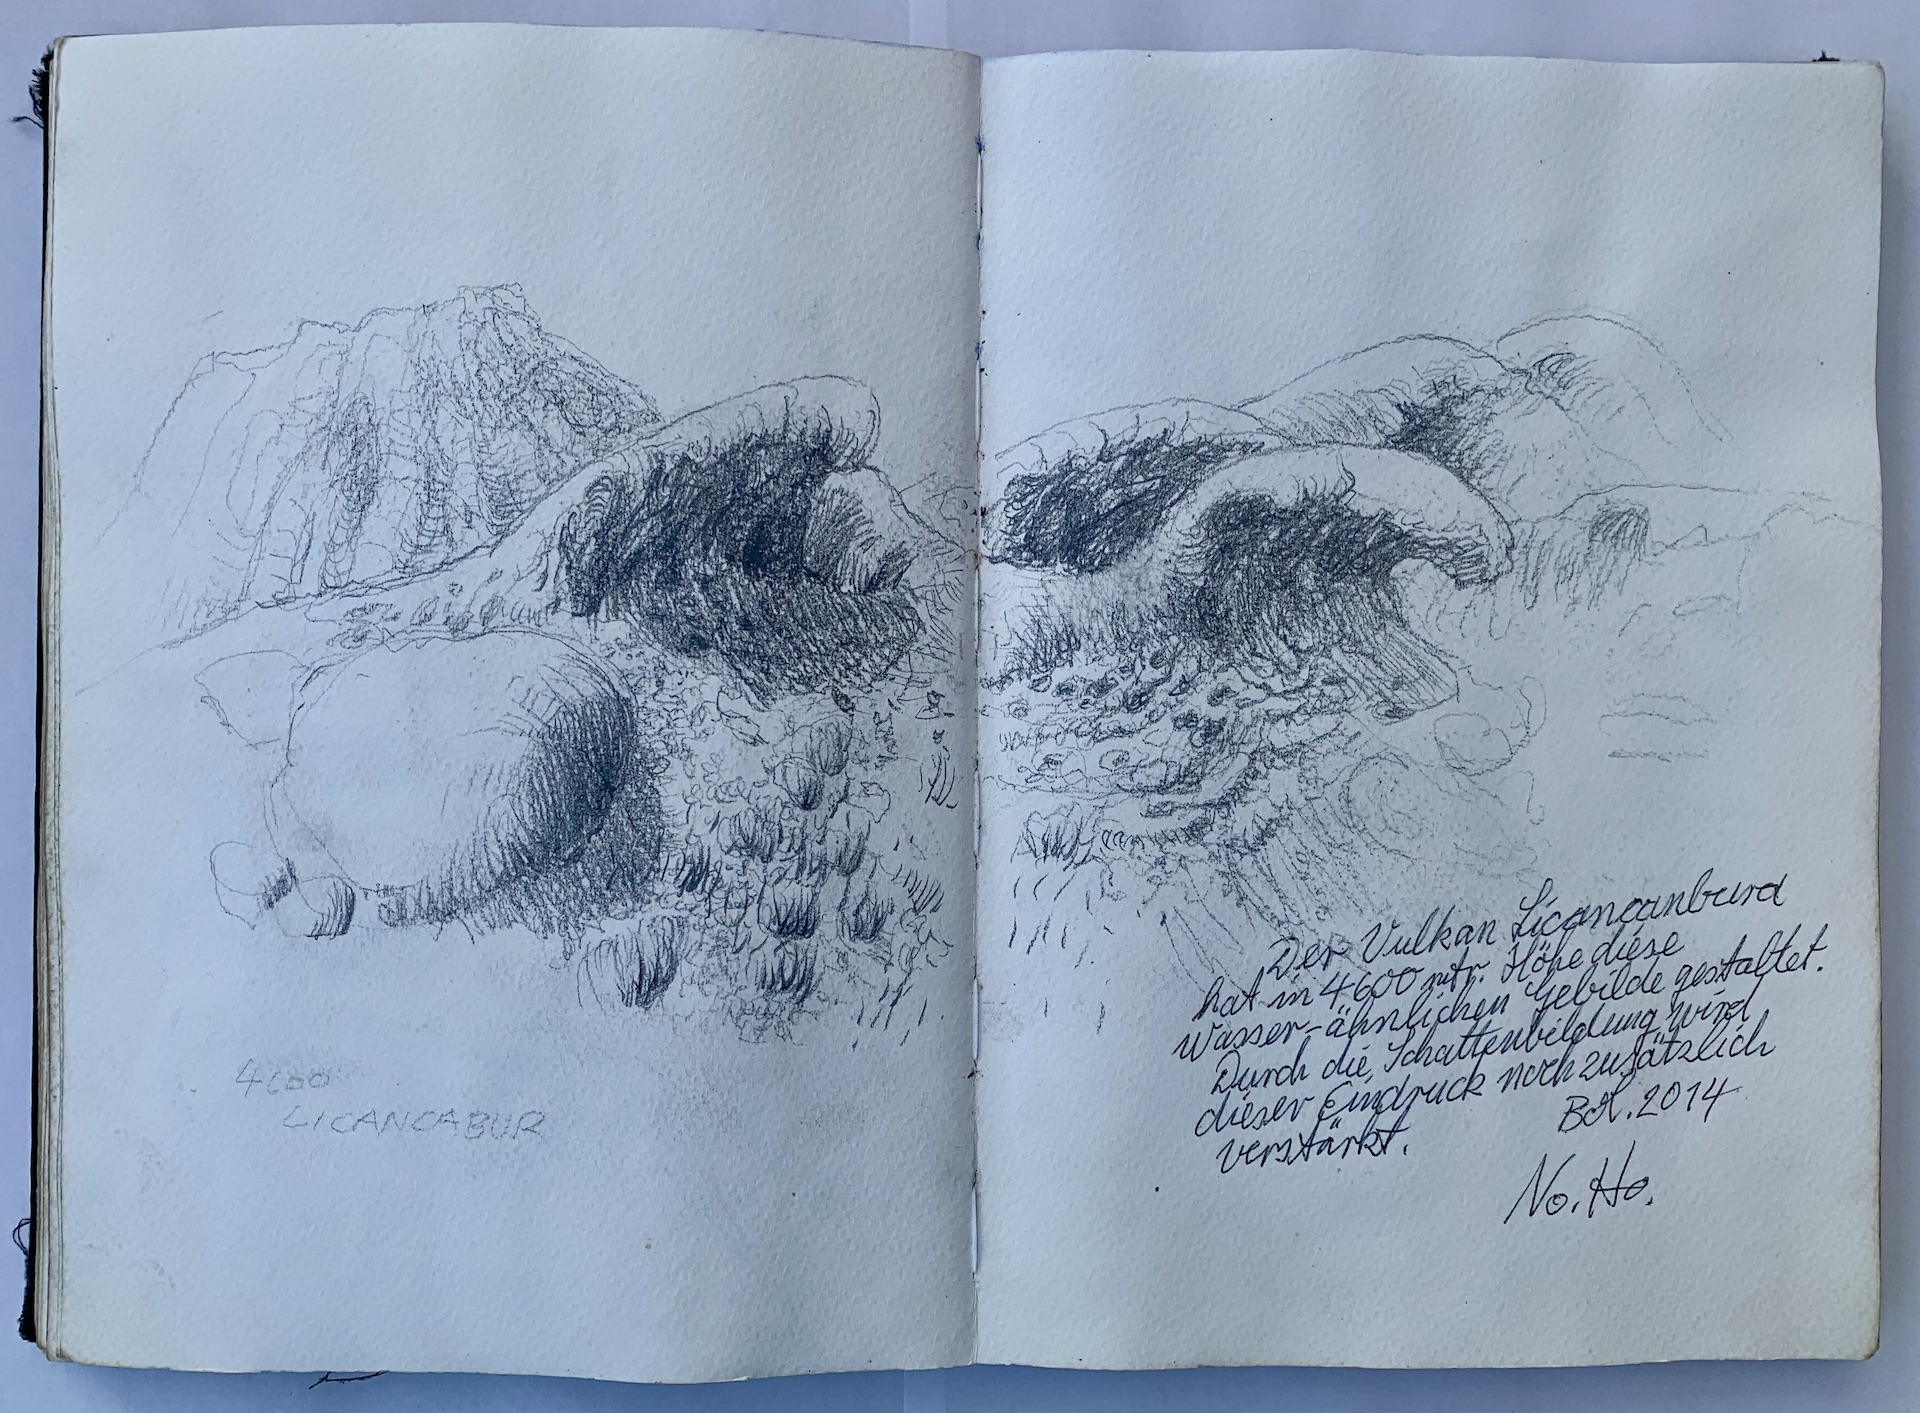 4600
LICANCABUR
Der Vulkan Licancanburd
hat in 4600 mtr. Höhe diese
Wasser-ähnlichen Gebilde gestaltet.
Durch die Schattenbildung wird
dieser Eindruck noch zusätzlich
verstärkt.
2014
No. Ho.